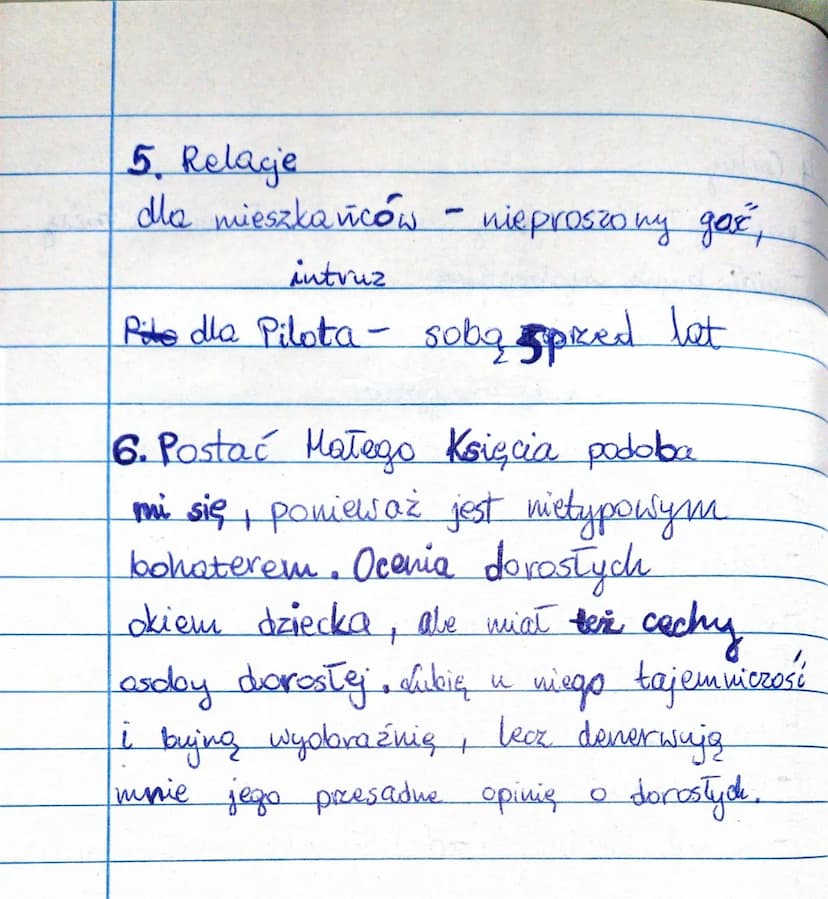 5. Relacje
dla mieszkańców - nieproszony gość,
intruz
dla Pilota - sobą sprzed lat
6. Postać Małego Księcia podoba
mi się, ponieważ jest nietypowym
bohaterem. Ocenia dorosłych
okiem dziecka, ale miał też cechy
osoby dorosłej. Lubię u niego tajemniczość
i bujną wyobraźnię, lecz denerwują
mnie jego przesadne opinię o dorosłych.